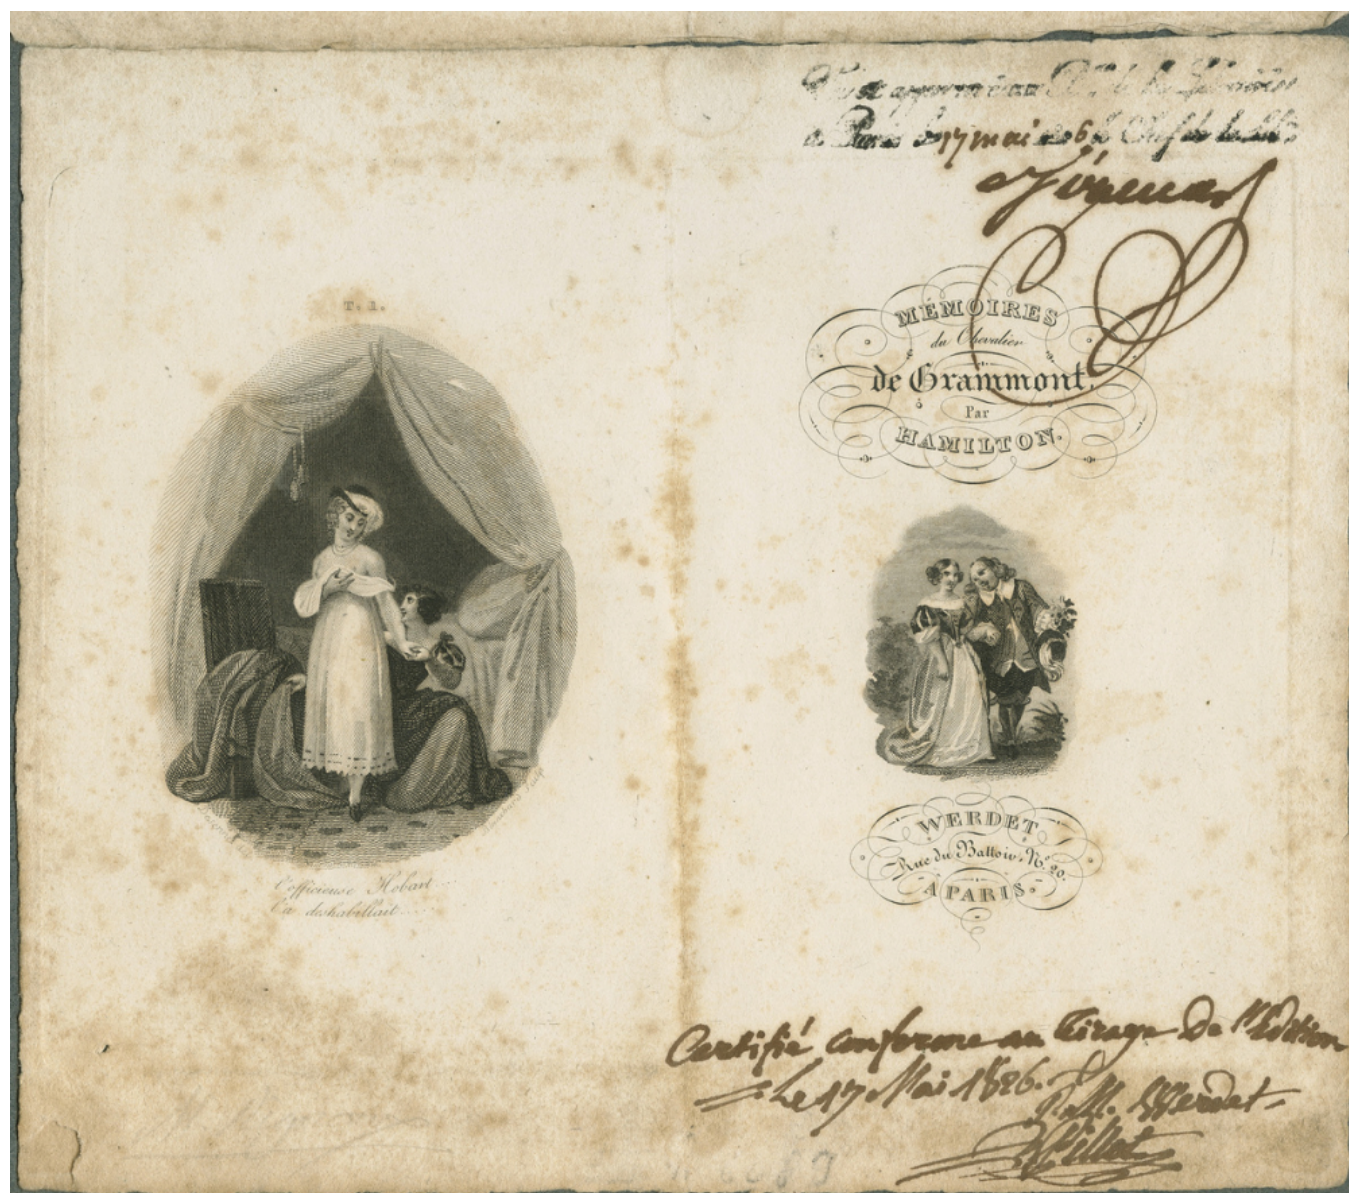 T. 1.
L'officieuse Hobart ...
La deshabillait ...
Vu et approuvé au
à Paris le 17 mai 6 le Chef
MÉMOIRES
du Chevalier
de Grammont,
Par
HAMILTON.
WERDET,
Rue du Battoir, N.º 20.
A PARIS.
Certifié conforme au Tirage De l'Edition
Le 17 Mai 1826.
Werdet
Pillet